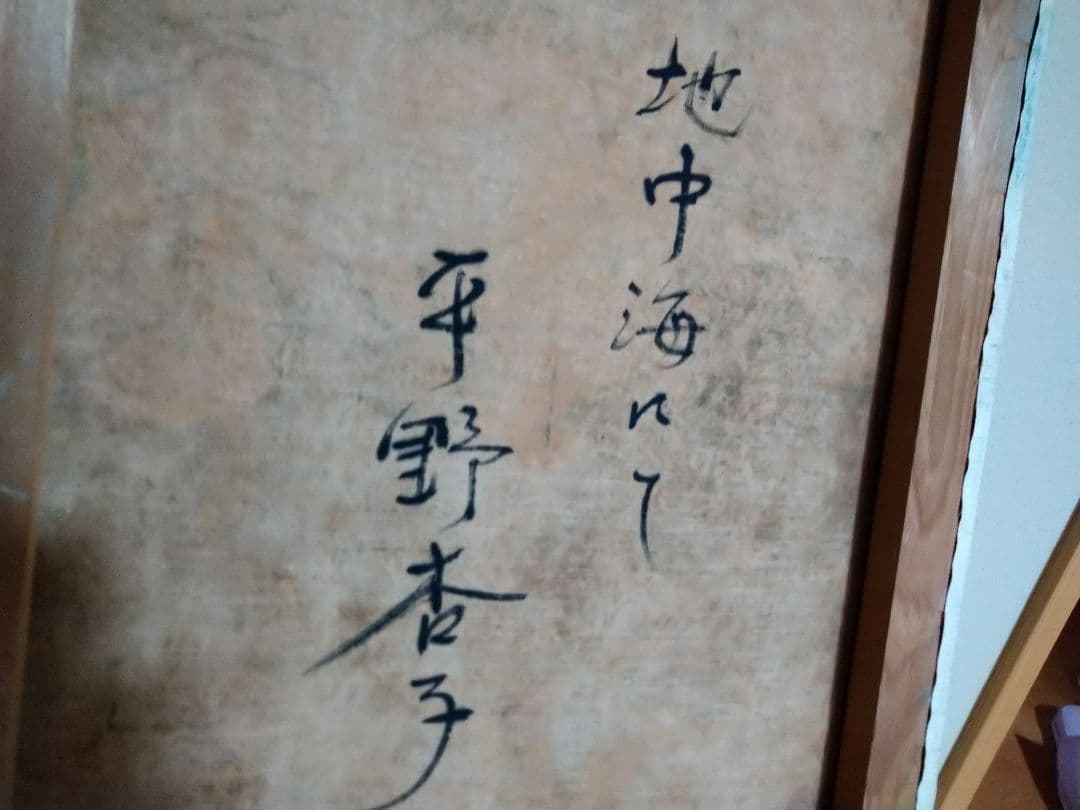 地中海にて
平野杏子